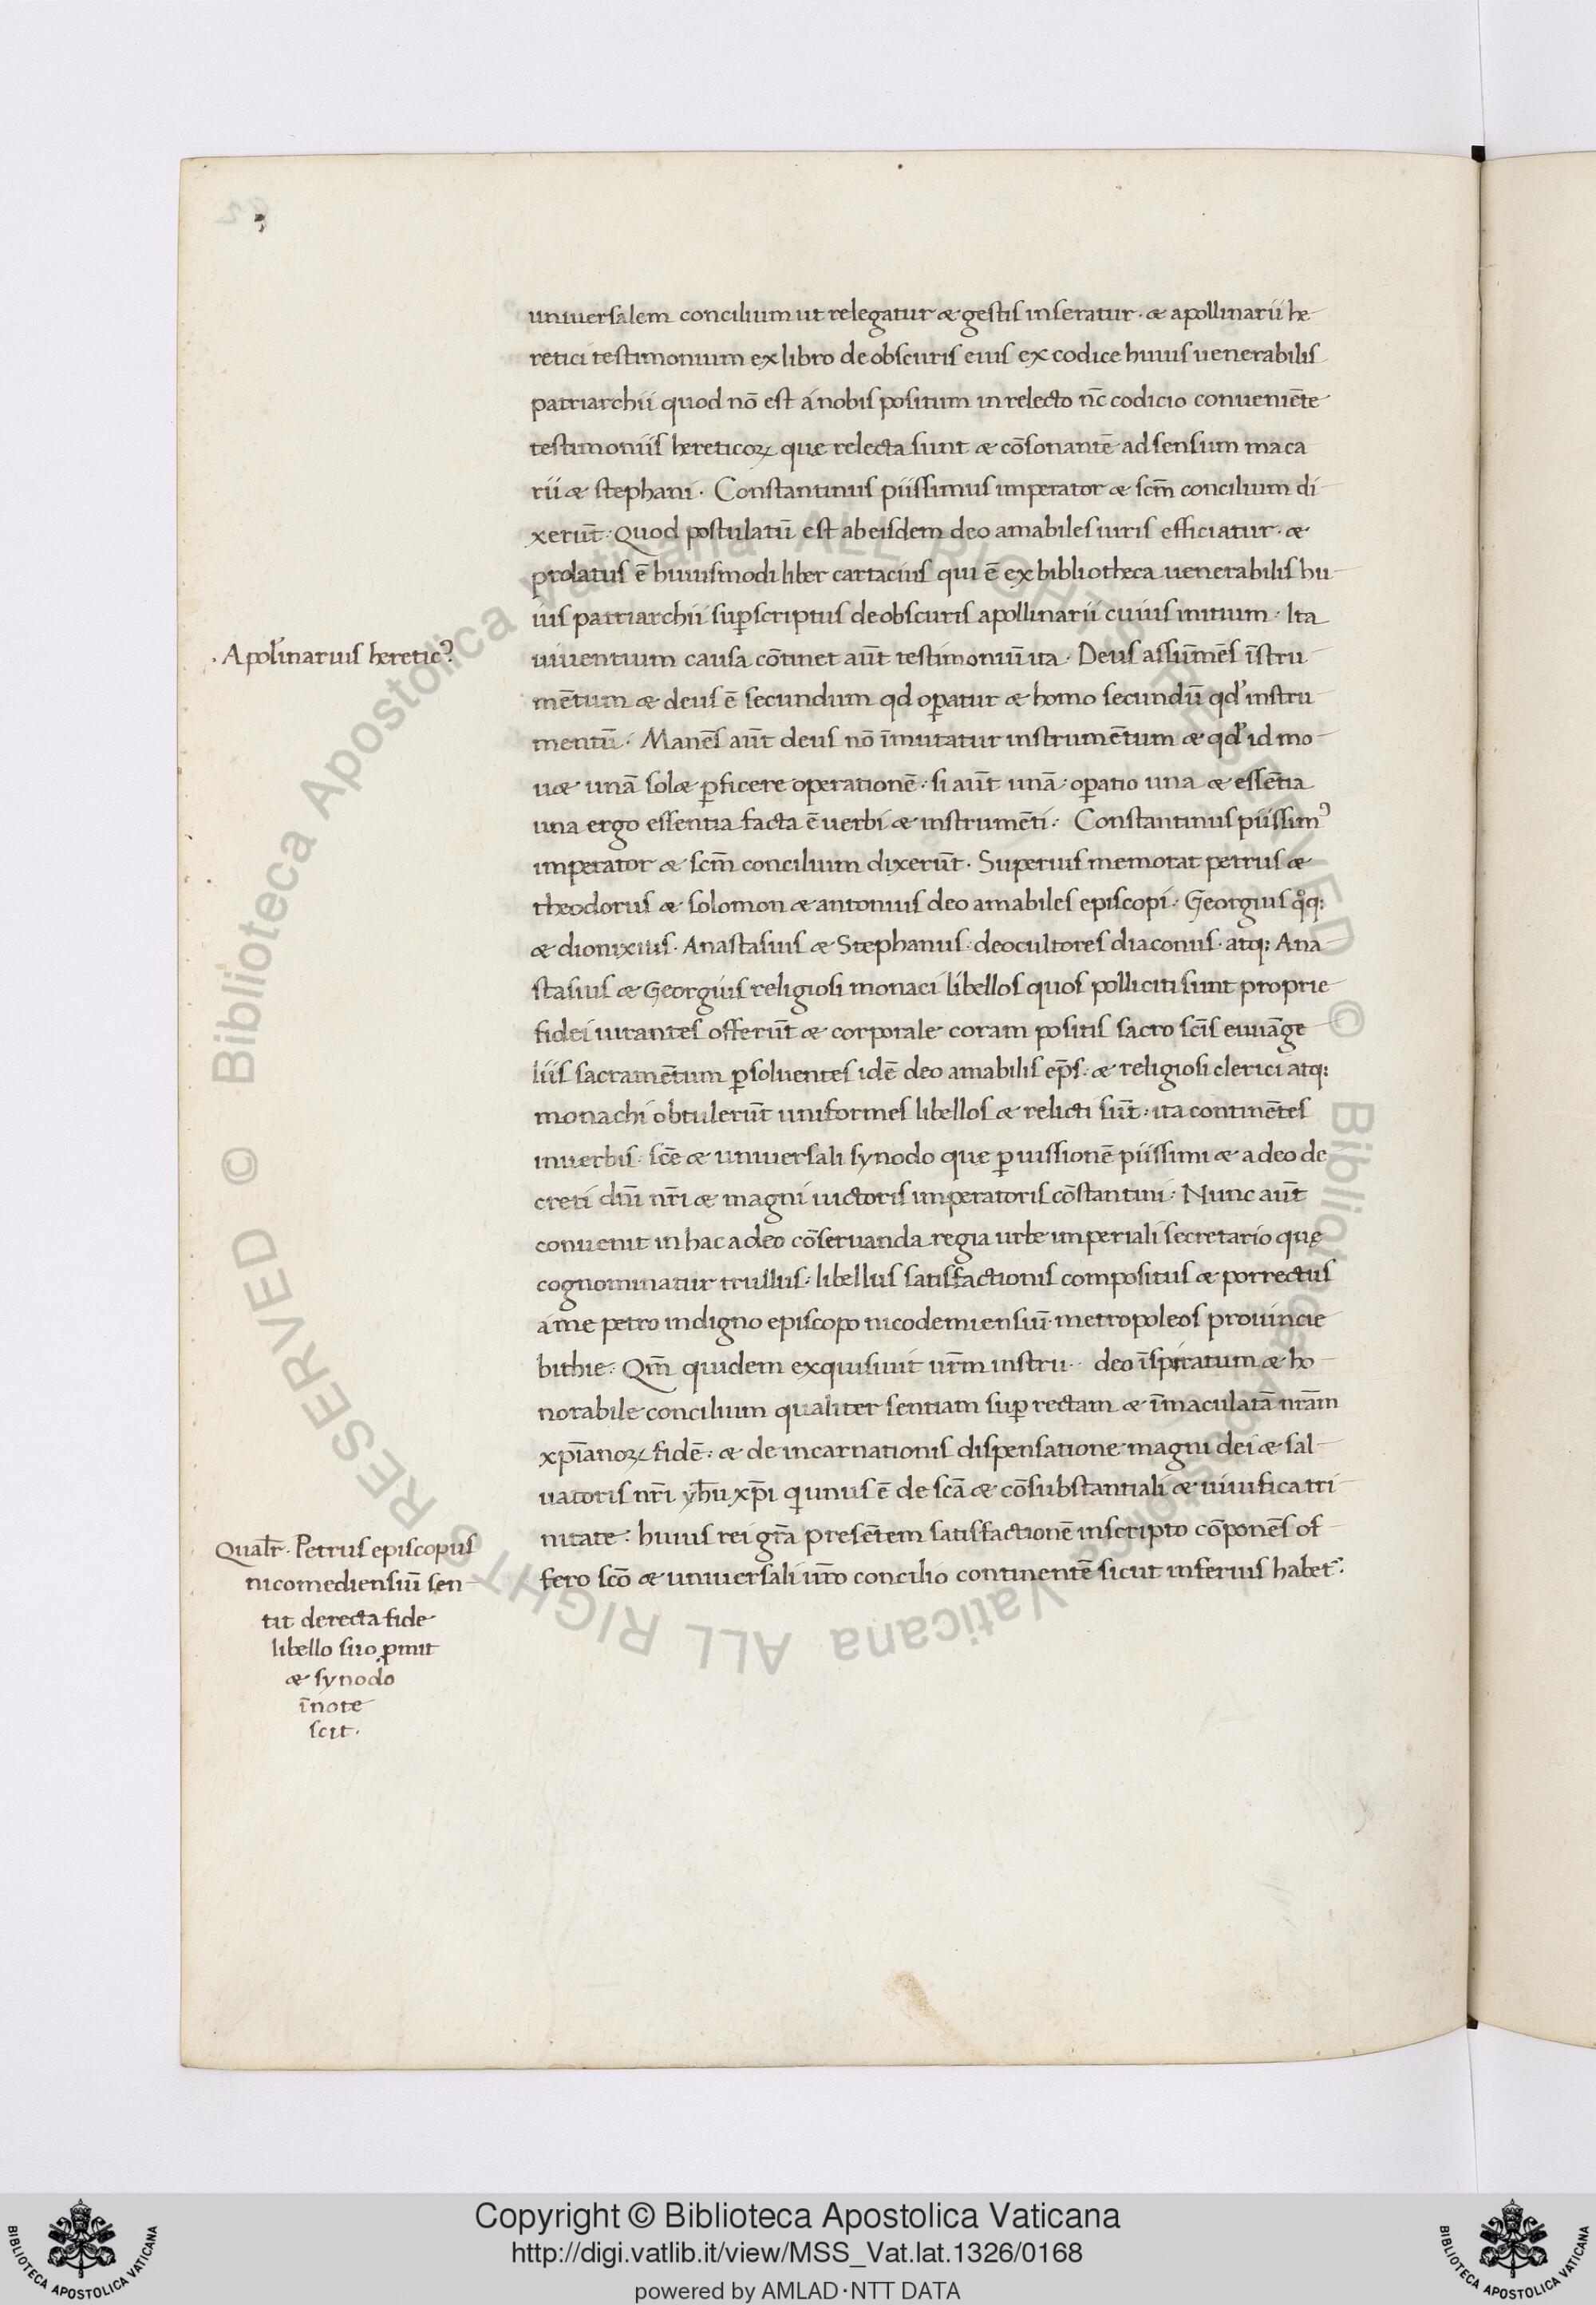 uniuersalem concilium ut relegatur & gestis inseratur · & apollinarii he
retici testimonium ex libro de obscuris eius ex codice huius uenerabilis
patriarchii quod nō est á nobis positum in relecto nc̄ codicio conueniēte
testimoniis hereticoꝝ que relecta sunt & cōsonantē ad sensum maca
rii & stephani · Constantinus piissimus imperator & scm̄ concilium di
xerūt · Quod postulatū est ab eisdem deo amabiles uiris efficiatur · &
prolatus ē huiusmodi liber cartacius qui ē ex bibliotheca uenerabilis hu
ius patriarchii suꝑscriptus de obscuris apollinarii cuius initium · Ita
· Apolinarius heretic⁹
uiuentium causa cōtinet aūt testimoniū ita · Deus assūmēs īstru
mētum & deus ē secundum qd oꝑatur & homo secundū qd' instru
mentū · Manēs aūt deus nō īmutatur instrumētum & qd' id mo
u& unā sol& ꝑficere operationē · si aūt unā · oꝑatio una & essētia
una ergo essentia facta ē uerbi & instrumēti · Constantinus piissim⁹
imperator & scm̄ concilium dixerūt · Superius memorat petrus &
theodorus & solomon & antonius deo amabiles episcopi · Georgius qͦq:
& dionixius · Anastasius & Stephanus · deocultores diaconus · atq: Ana
stasius & Georgius religiosi monaci libellos quos polliciti sunt proprie
fidei iurantes offerūt & corporale coram positis sacro scīs euuāge
liis sacramētum ꝑsoluentes idē deo amabilis ep̄s · & religiosi clerici atq:
monachi obtulerūt uniformes libellos & relicti sūt · ita continētes
in uerbis · scē & uniuersali synodo que ꝑ uissionē piissimi & a deo de
creti dn̄i nr̄i & magni uictoris imperatoris cōstantini · Nunc aūt
conuenit in hac a deo cōseruanda regia urbe imperiali secretario quę
cognominatur trullus · libellus satisfactionis compositus & porrectus
á me petro indigno episcopo nicodemiensiū · metropoleos prouincie
bithie · Qm̄ quidem exquisiuit ur̄m instru·· deo īspiratum & ho
norabile concilium qualiter sentiam suꝑ rectam & īmaculatā nrām
xp̄ianoꝝ fidē · & de incarnationis dispensatione magni dei & sal
uatoris nr̄i yh̄u xp̄i qi unus ē de scā & cōsubstantiali & uiuifica tri
nitate · huius rei grā presētem satisfactionē in scripto cōponēs of
fero scō & uniuersali ur̄o concilio continentē sicut inferius habet᾽ ·
Qualr̄ · Petrus episcopus
nicomediensiū sen
tit de recta fide
libello suo ꝓmit
& synodo
īnote
scit ·
Copyright © Biblioteca Apostolica Vaticana
http://digi.vatlib.it/view/MSS_Vat.lat.1326/0168
powered by AMLAD·NTT DATA
BIBLIOTECA APOSTOLICA VATICANA
BIBLIOTECA APOSTOLICA VATICANA
© Biblioteca Apostolica Vaticana ALL RIGHTS RESERVED © Biblioteca Apostolica Vaticana ALL RIGHTS RESERVED